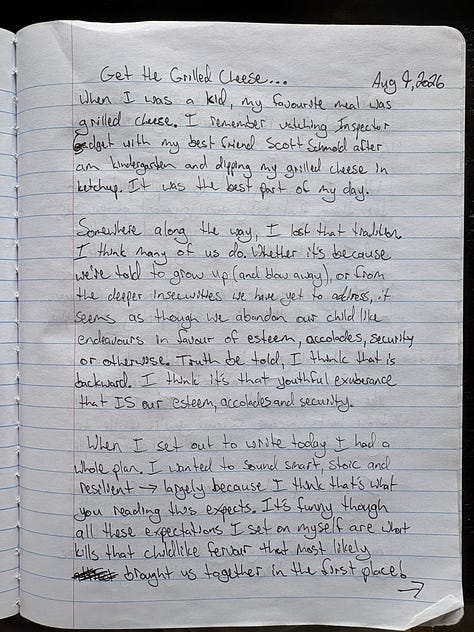 Get the Grilled Cheese... Aug 9, 2026
When I was a kid, my favourite meal was
grilled cheese. I remember watching Inspector
Gadget with my best friend Scott Schmold after
am kindergarten and dipping my grilled cheese in
ketchup. It was the best part of my day.
Somewhere along the way, I lost that tradition.
I think many of us do. Whether it's because
we're told to grow up (and blow away), or from
the deeper insecurities we have yet to address, it
seems as though we abandon our child like
endeavours in favour of esteem, accolades, security
or otherwise. Truth be told, I think that is
backward. I think it's that youthful exuberance
that IS our esteem, accolades and security.
When I set out to write today I had a
whole plan. I wanted to sound smart, stoic and
resilient → largely because I think that's what
you reading this expects. It's funny though
all these expectations I set on myself are what
kills that childlike fervour that most likely
brought us together in the first place!
→